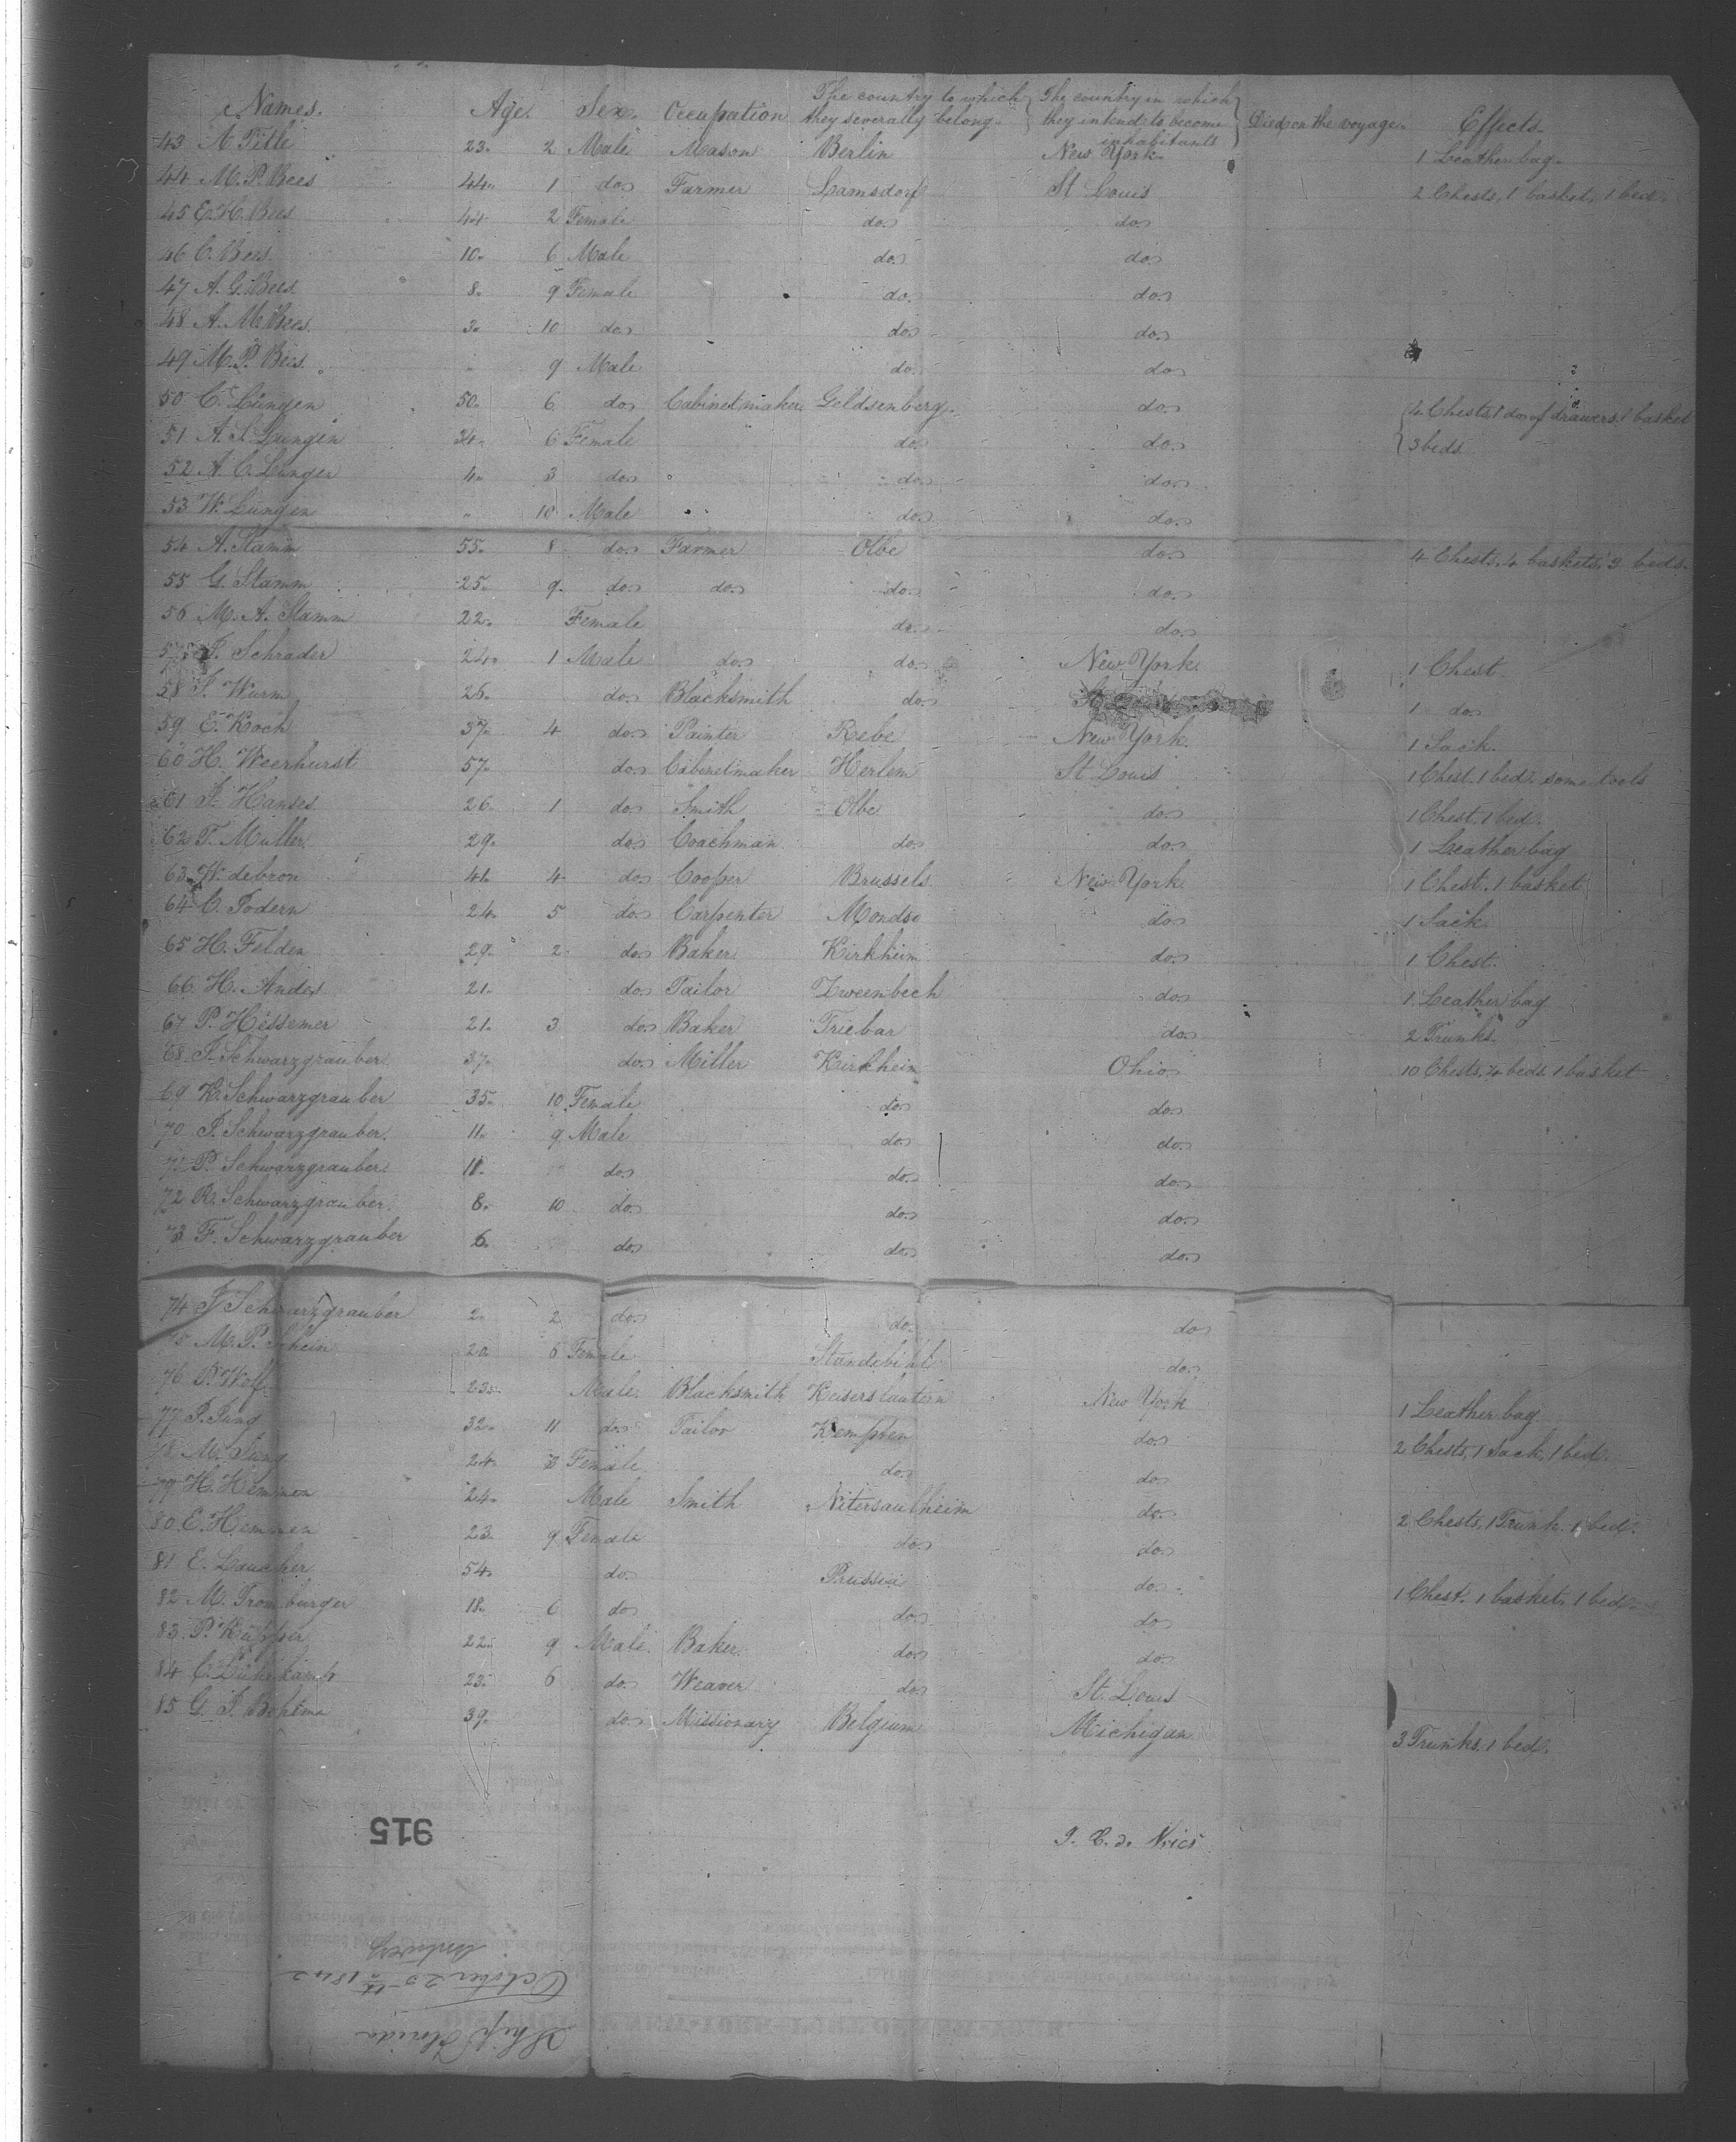 Names. Age. Sex. Occupation The country to which they severally belong. The country in which they intend to become inhabitants Died on the voyage. Effects.
43 A Title 23. 2 Male Mason Berlin New York 1 Leather bag.
44 M. P. Bees 44. 1 do. Farmer Lamsdorf St Louis 2 Chests, 1 basket, 1 bed.
45 E. H. Bees 44 2 Female do. do.
46 C. Bees 10. 6 Male do. do.
47 A. G. Bees 8. 9 Female do. do.
48 A. M. Bees. 3. 10 do. do. do.
49 M. P. Bees. " 9 Male do. do
50 C. Lüngen 50. 6 do. Cabinetmaker Geldsenberg. do. 4 Chests 1 do. of drawers 1 basket
51 A. S. Lüngen 34. 6 Female do. do. 3 beds
52 A. C. Lüngen 4. 3 do. do. do.
53 W. Lüngen " 10 Male do. do.
54 A. Stamm 55. 8 do. Farmer Olbe do. 4 Chests, 4 baskets, 3 beds.
55 G. Stamm 25. 9. do. do. do. do.
56 M. A. Stamm 22. Female do. do.
57 J. Schrader 24. 1 Male do. do. New York. 1 Chest.
58 J. Wurm 26. do. Blacksmith do. 1 do
59 E. Koch 37. 4 do. Painter Rebe New York. 1 Sack.
60 H. Weerhurst 57. do. Cabinetmaker Herlem St Louis 1 Chest. 1 bed. some tools
61 J. Hanses 26. 1 do. Smith Olbe do. 1 Chest. 1 bed.
62 T. Muller. 29. do. Coachman do. do. 1 Leather bag
63 W. debron 41. 4 do. Cooper Brussels New York 1 Chest. 1 basket
64 C. Podern 24. 5 do. Carpenter Mondso do. 1 Sack
65 H. Felden 29. 2 do. Baker Kirkheim do. 1 Chest.
66 H. Andes 21. do. Tailor Zweenbech do. 1 Leather bag
67 P. Hessemer 21. 3 do. Baker Triebar do. 2 Trunks.
68 J. Schwarzgrauber. 37. do. Miller Kirkheim Ohio 10 Chests, 4 beds 1 basket
69 K. Schwarzgrauber 35. 10 Female do. do.
70 J. Schwarzgrauber. 11. 9 Male do. do.
71 P. Schwarzgrauber. 11. do. do. do.
72 R. Schwarzgrauber. 8. 10 do. do. do.
73 F. Schwarzgrauber 6. do. do. do.
74 J Schwarzgrauber 2. 2 do. do. do
75 M. P. 20 6 Female do.
76 P. Wolf 23. Male. Blacksmith Keiserslautern New York 1 Leather bag
77 J. Jung 32. 11 do. Tailor Kempten do. 2 Chests, 1 Sack, 1 bed.
78 M. Jung 24. Female do. do.
79 H. Hemmen 24. Male Smith Nitersaulheim do. 2 Chests, 1 Trunk. 1 bed.
80 E. Hemmen 23 9 Female do. do.
81 E. Laucher 54. do. Prussia do. 1 Chest. 1 basket, 1 bed.
82 M. Tromburger 18. 6 do do. do.
83 P. Küpper 22. 9 Male. Baker do. do.
84 C. 23. 6 do. Weaver do St. Louis
85 G. J. Bohlma 39. do. Missionary Belgium Michigan 3 Trunks, 1 bed.
915
J. C. d. Vries
Antwerp
October 25th 1842
Ship Florida